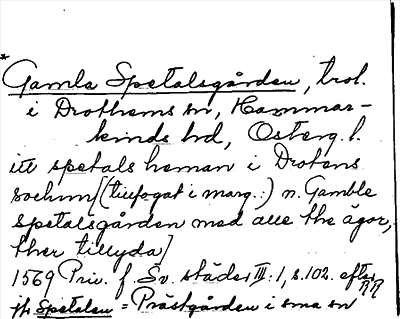 * Gamla Spetalsgården, trol.
i Drothems sn, Hammar-
kinds hd, Österg. l.
itt spetals heman i Drotens
sochnn/(tillfogat i marg.:) n. Gamble
spetalsgården med alle the ägor,
ther tillyda/
1569 Priv. f. Sv. städer III:1, s. 102. efter RR
jfr Spetalen = Prästgården i sma sn